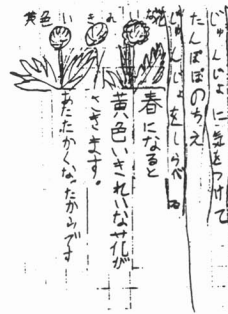 じゅんじょに気をつけて
たんぽぽのちえ
じゅんじょをしらべる
春になると
黄色いきれいな花が
さきます。
あたたかくなったからです
黄色いきれい花